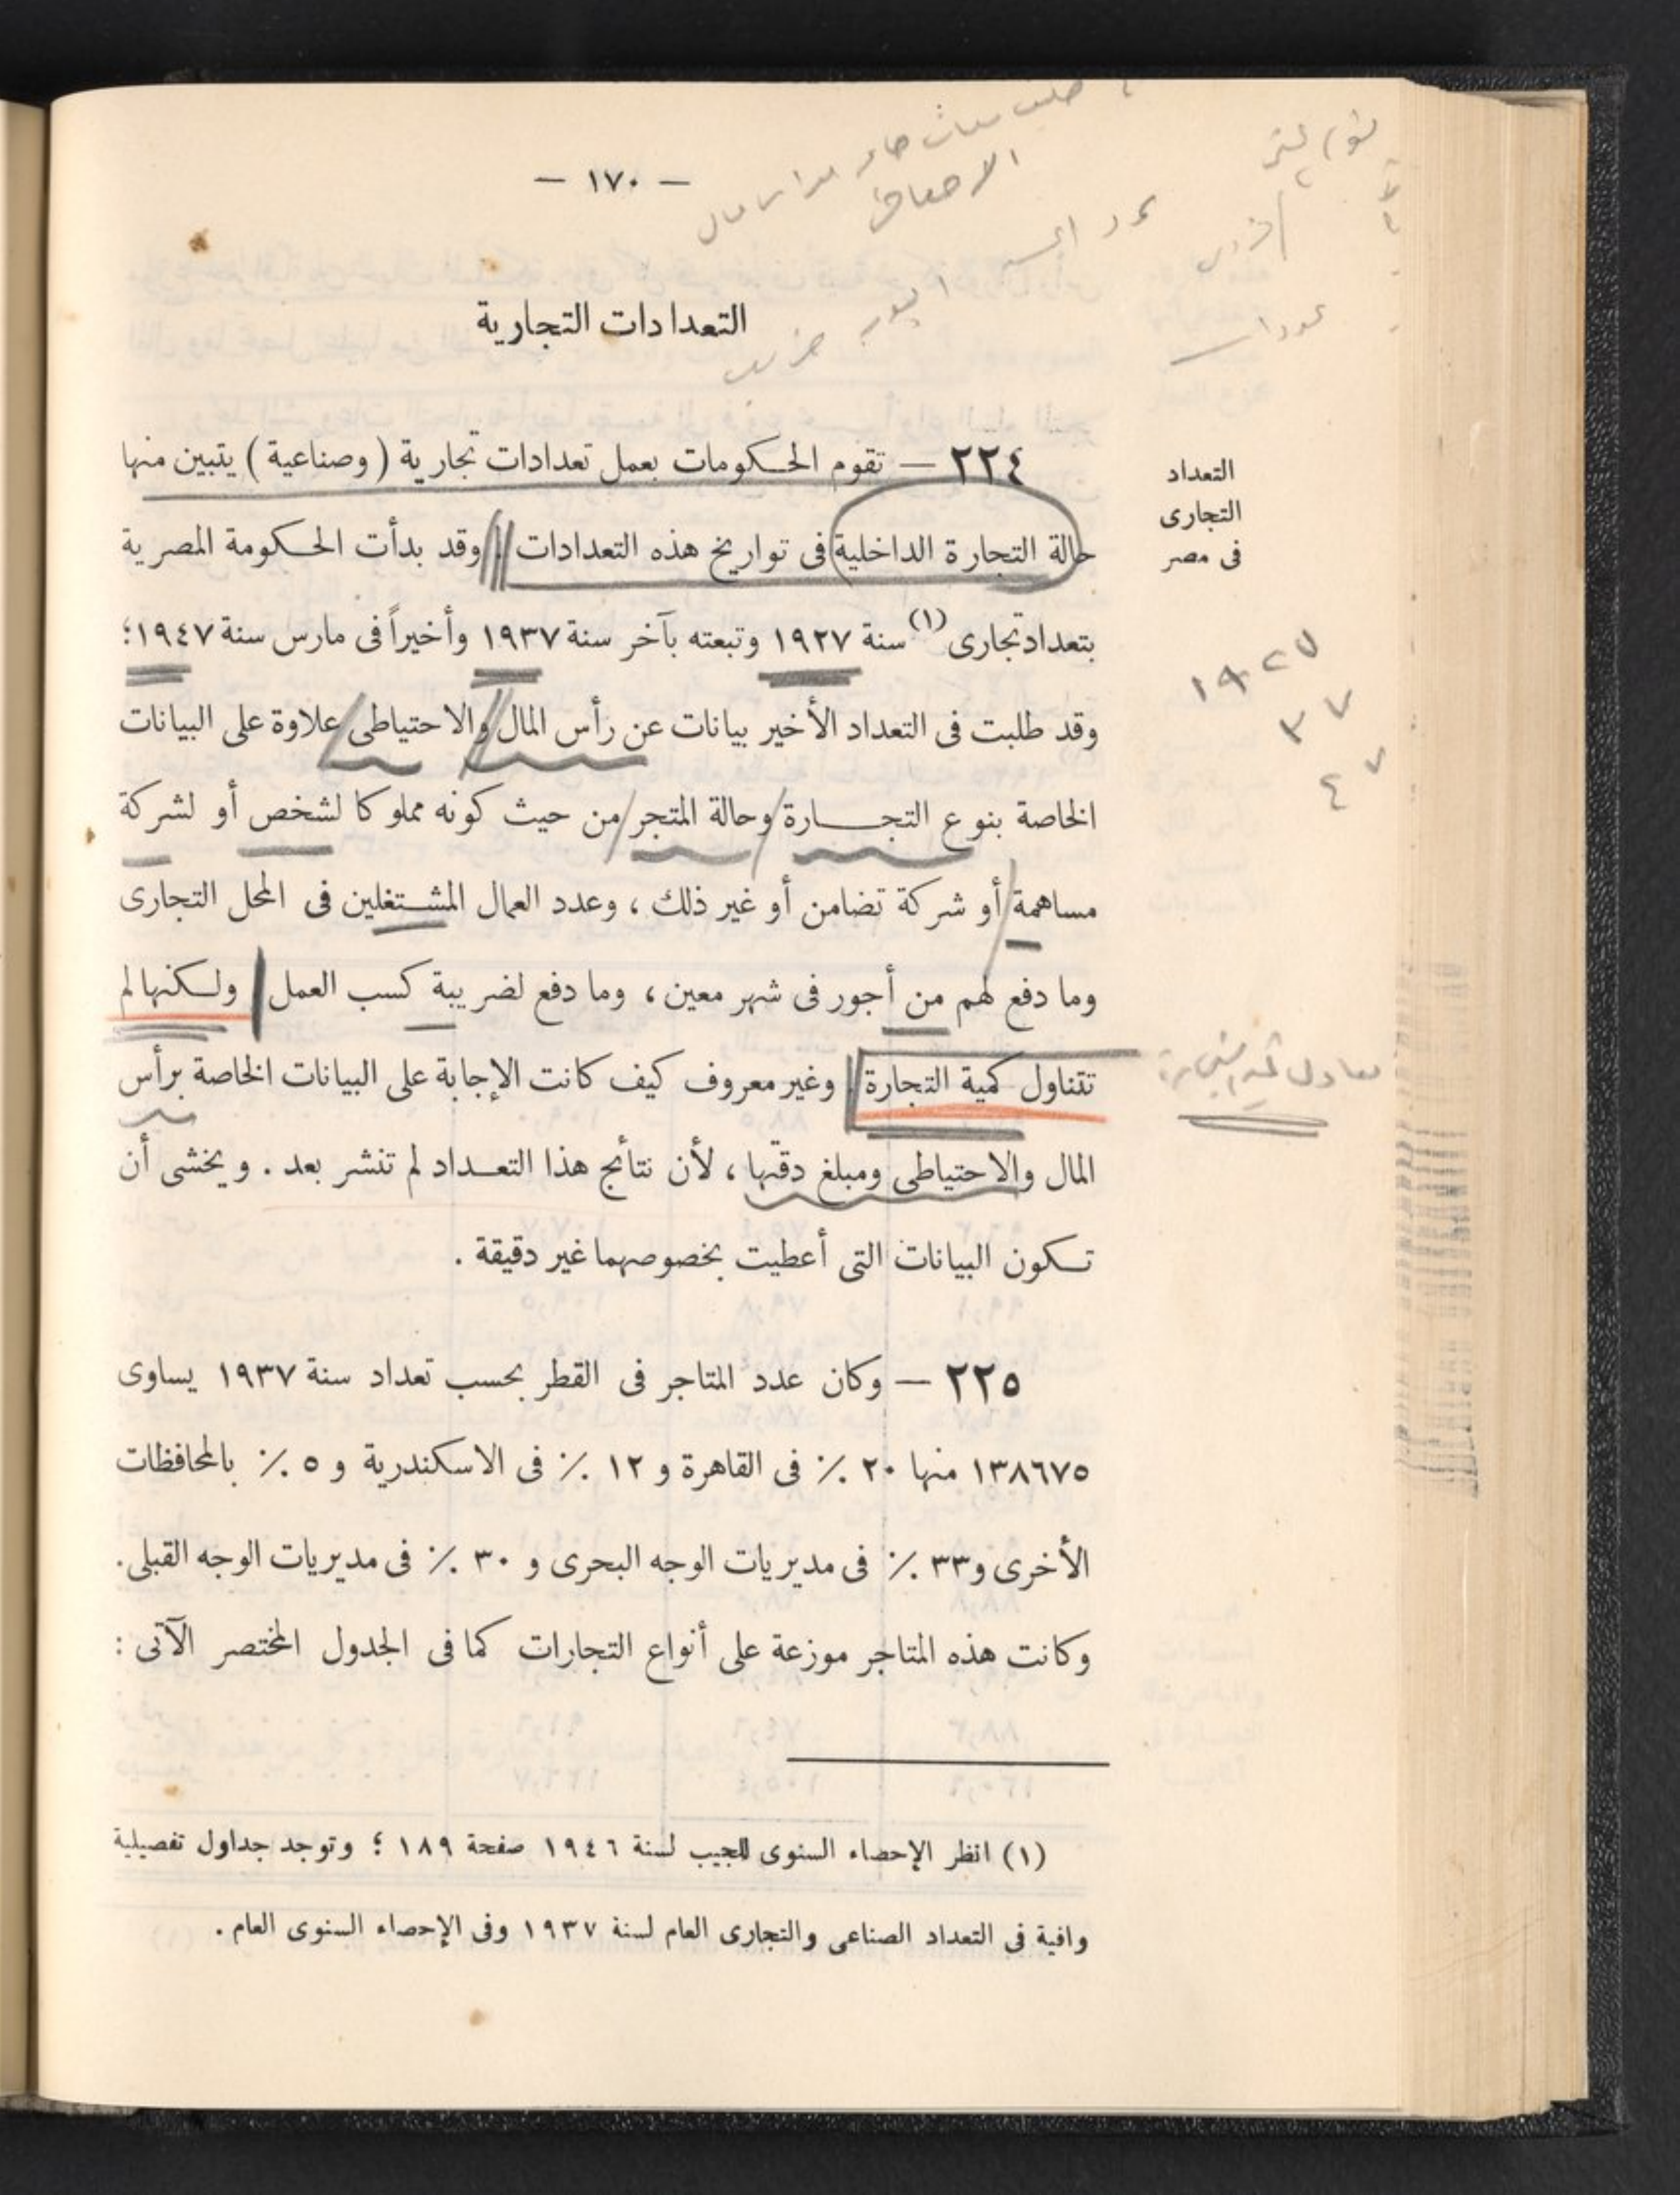 — ١٧٠ —
التعدادات التجارية
التعداد
التجارى
فى مصر
٢٢٤ — تقوم الحكومات بعمل تعدادات تجارية ( وصناعية ) يتبين منها
حالة التجارة الداخلية فى تواريخ هذه التعدادات . وقد بدأت الحكومة المصرية
بتعداد تجارى (١) سنة ١٩٢٧ وتبعته بآخر سنة ١٩٣٧ وأخيراً فى مارس سنة ١٩٤٧ ؛
وقد طلبت فى التعداد الأخير بيانات عن رأس المال والاحتياطى علاوة على البيانات
الخاصة بنوع التجارة وحالة المتجر من حيث كونه مملوكا لشخص أو لشركة
مساهمة أو شركة تضامن أو غير ذلك ، وعدد العمال المشتغلين فى المحل التجارى
وما دفع لهم من أجور فى شهر معين ، وما دفع لضريبة كسب العمل ولكنها لم
تتناول كمية التجارة . وغير معروف كيف كانت الإجابة على البيانات الخاصة برأس
المال والاحتياطى ومبلغ دقتها ، لأن نتائج هذا التعداد لم تنشر بعد . ويخشى أن
تكون البيانات التى أعطيت بخصوصهما غير دقيقة .
١٩٢٧
٣٧
٤٧
٢٢٥ — وكان عدد المتاجر فى القطر بحسب تعداد سنة ١٩٣٧ يساوى
١٣٨٦٧٥ منها ٢٠ ٪ فى القاهرة و ١٢ ٪ فى الاسكندرية و ٥ ٪ بالمحافظات
الأخرى و ٣٣ ٪ فى مديريات الوجه البحرى و ٣٠ ٪ فى مديريات الوجه القبلى .
وكانت هذه المتاجر موزعة على أنواع التجارات كما فى الجدول المختصر الآتى :
(١) انظر الإحصاء السنوى للجيب لسنة ١٩٤٦ صفحة ١٨٩ ؛ وتوجد جداول تفصيلية
وافية فى التعداد الصناعى والتجارى العام لسنة ١٩٣٧ وفى الإحصاء السنوى العام .